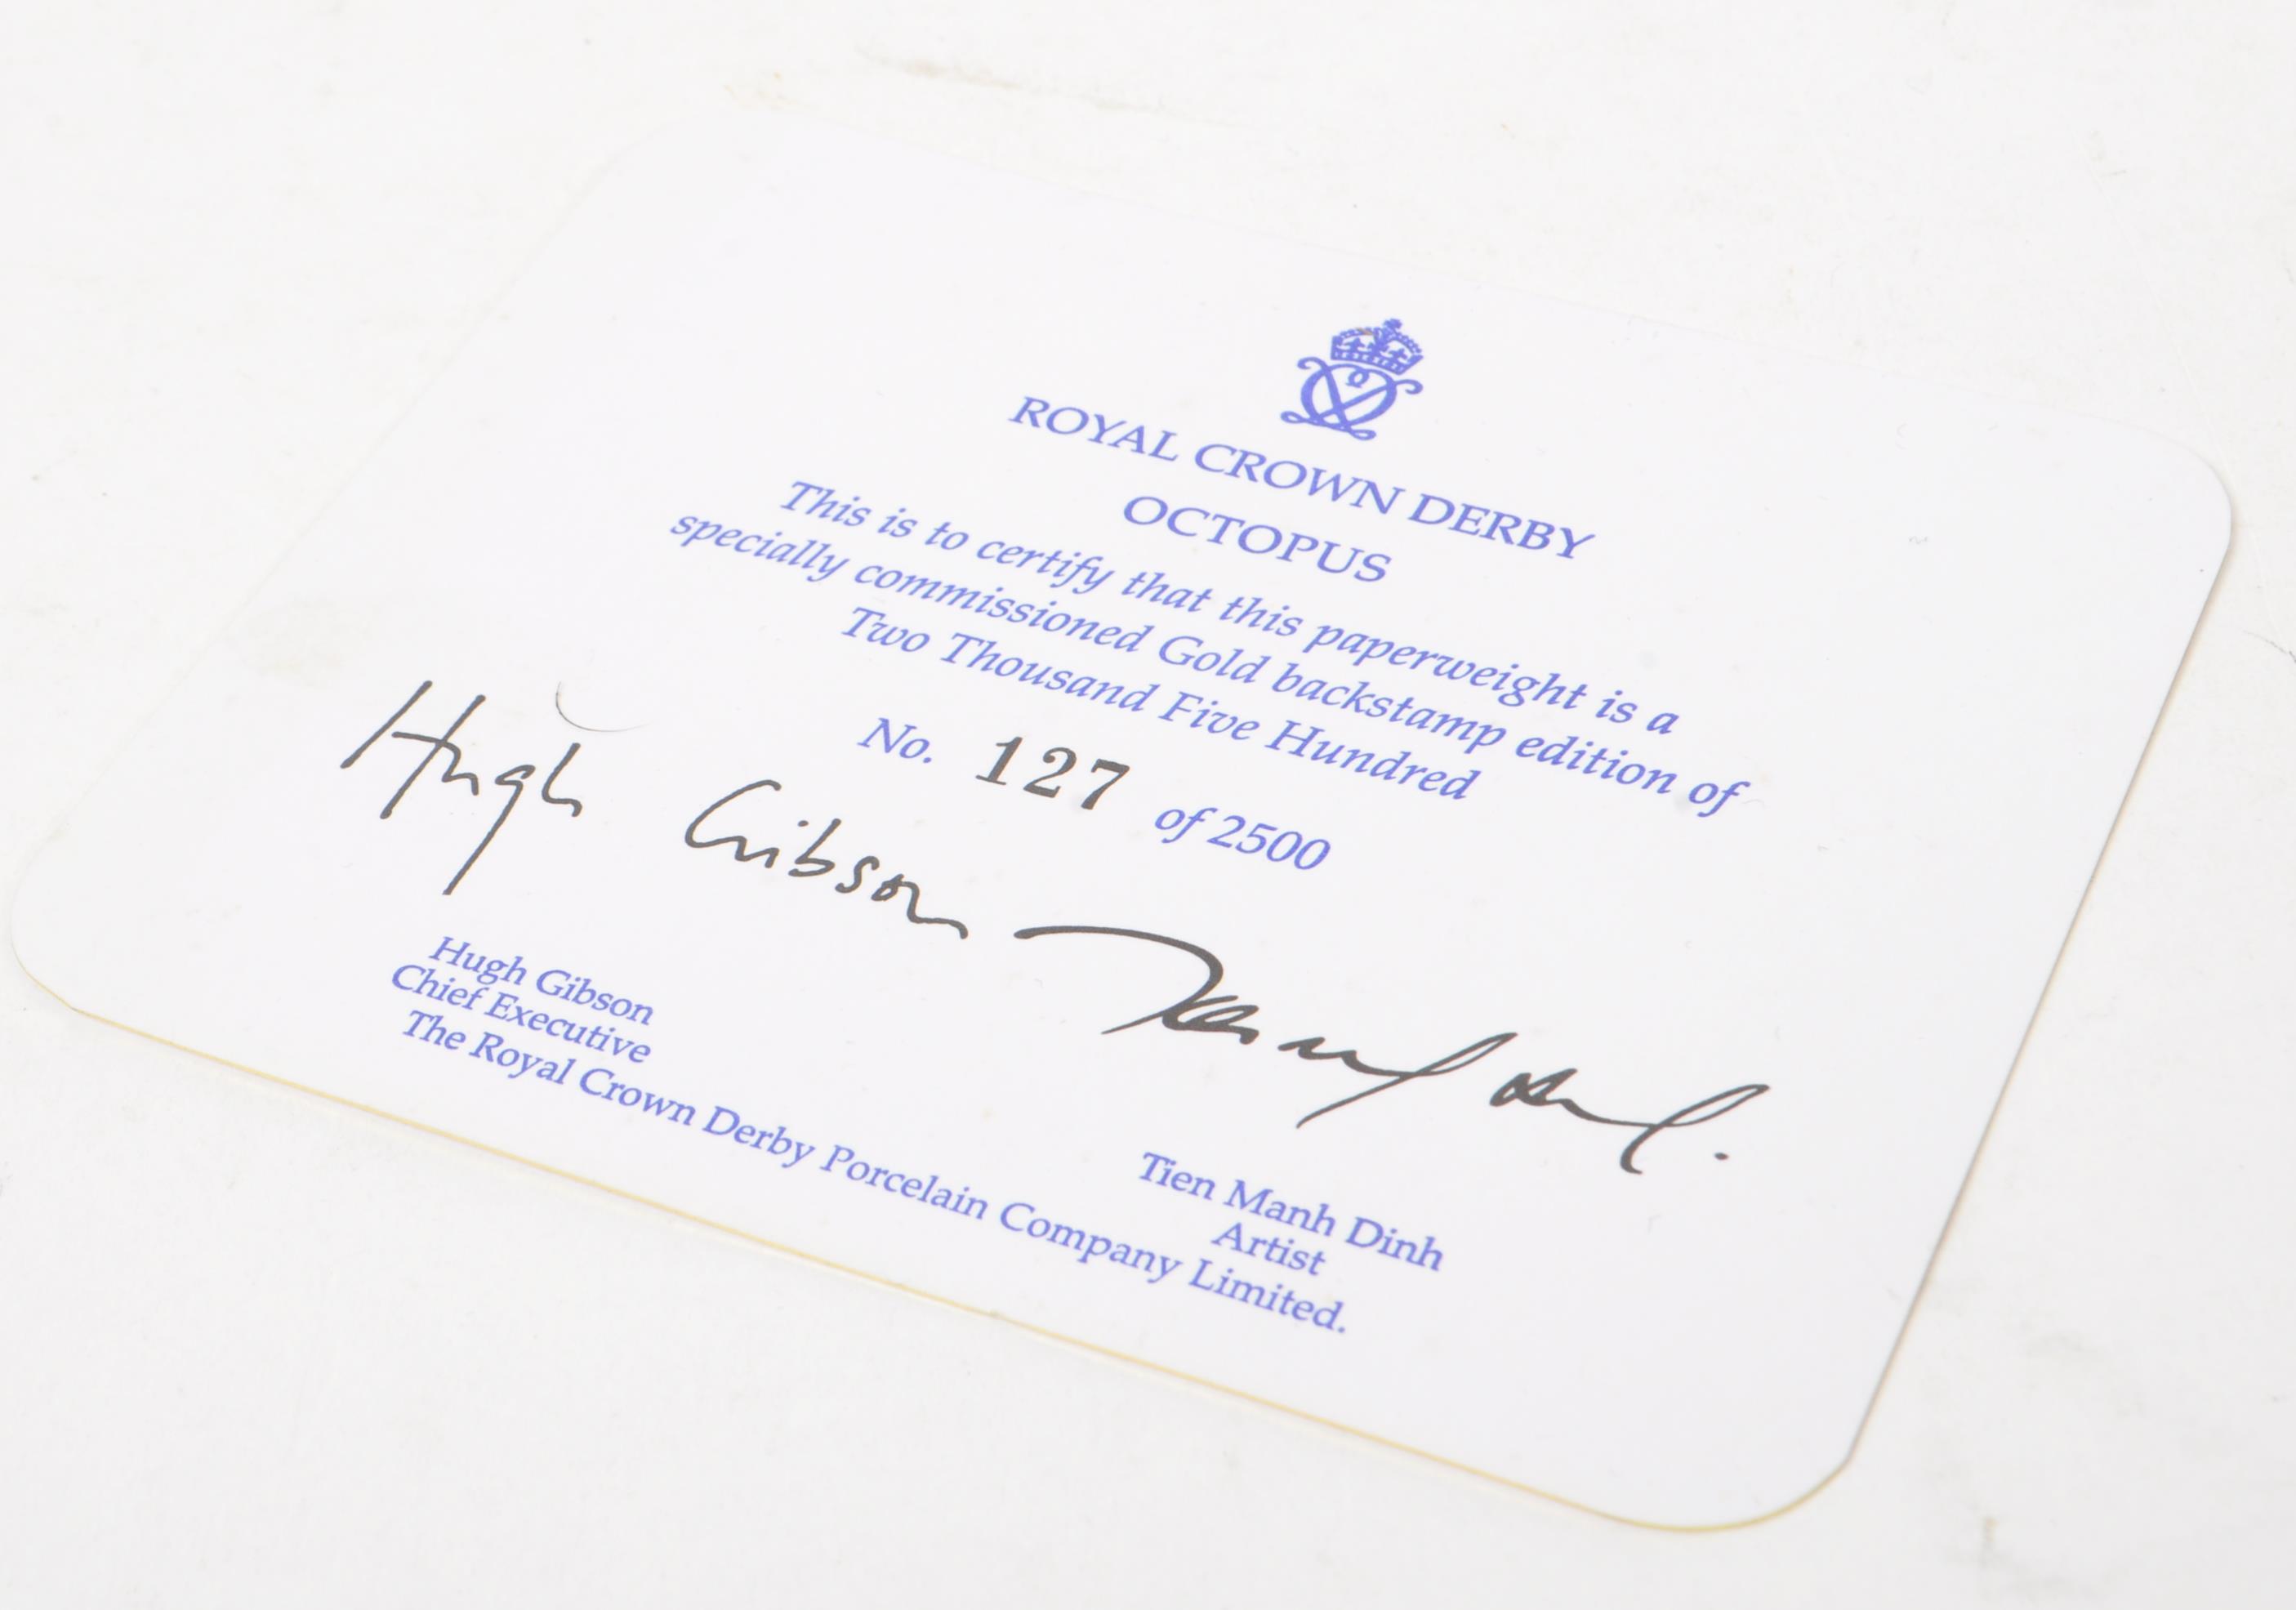 ROYAL CROWN DERBY
OCTOPUS
This is to certify that this paperweight is a
specially commissioned Gold backstamp edition of
Two Thousand Five Hundred
No. 127 of 2500
Hugh Gibson
Hugh Gibson
Chief Executive
Tien Manh Dinh
Artist
The Royal Crown Derby Porcelain Company Limited.